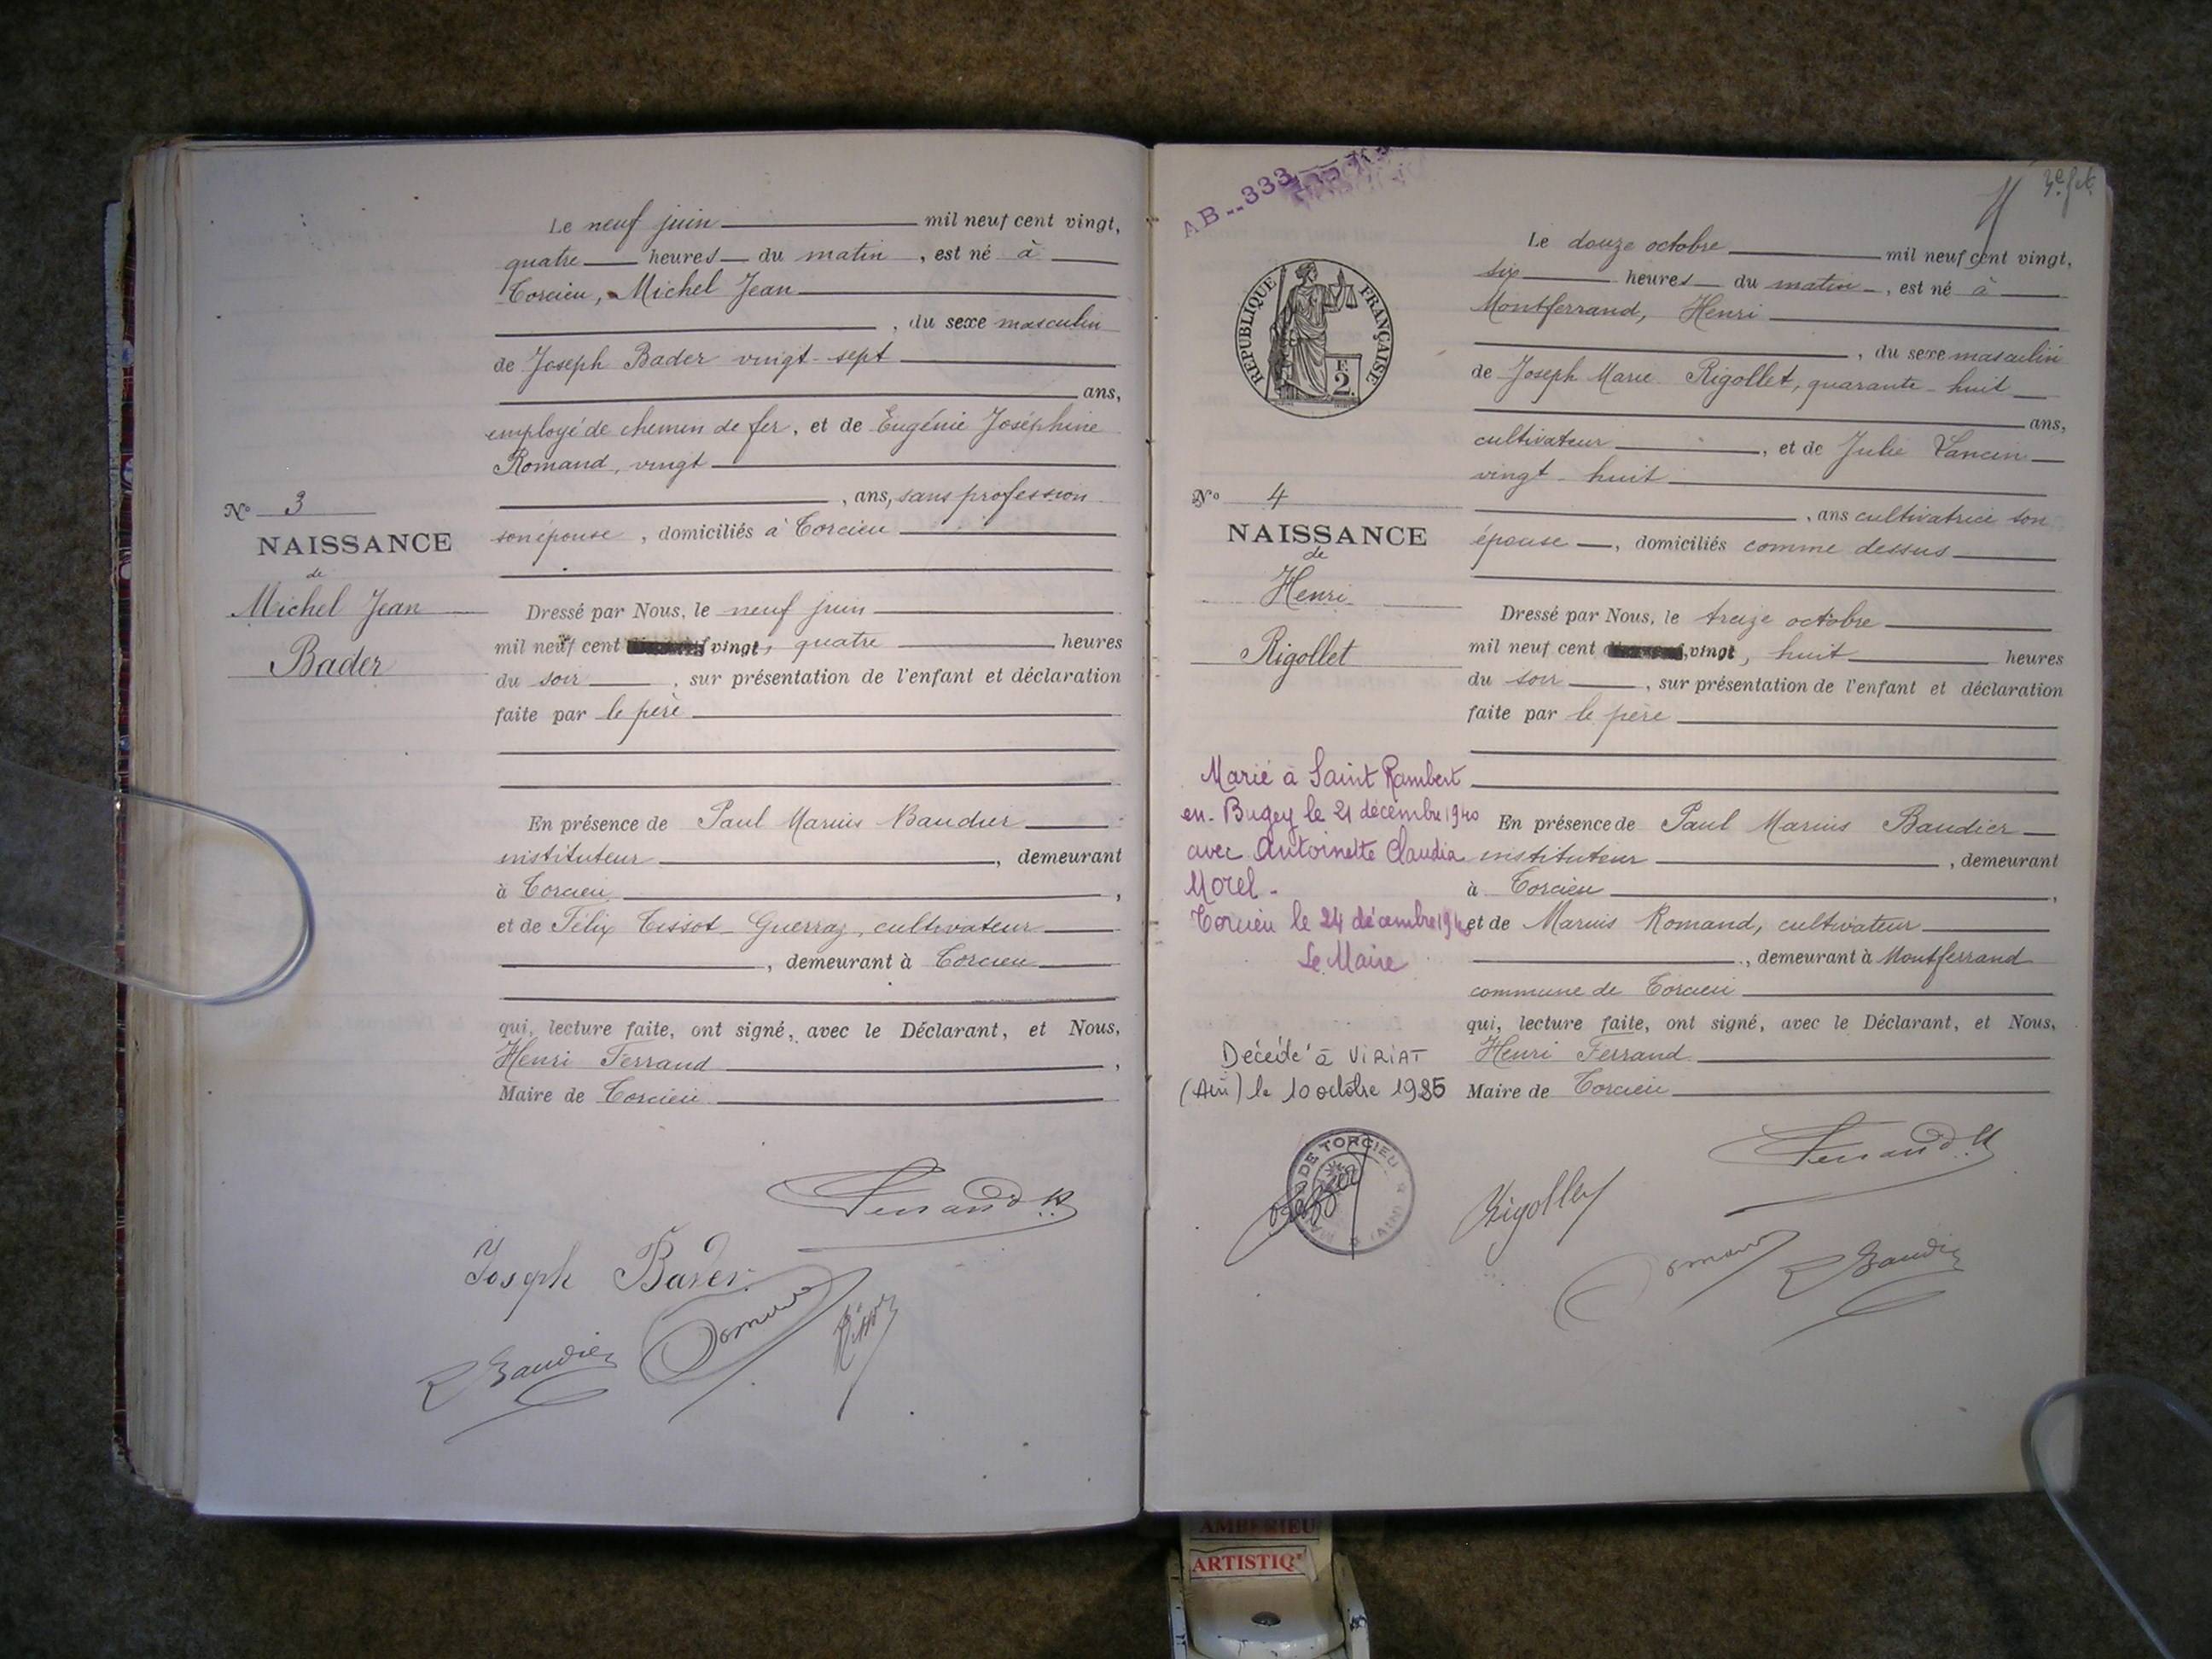 Le neuf juin mil neuf cent vingt,
quatre heures du matin, est né à
Torcieu, Michel Jean
, du sexe masculin
de Joseph Bader vingt-sept
ans,
employé de chemin de fer, et de Eugénie Joséphine
Romand, vingt
, ans, sans profession
son épouse, domiciliés à Torcieu
N° 3
NAISSANCE
de
Michel Jean
Bader
Dressé par Nous, le neuf juin
mil neuf cent vingt, quatre heures
du soir, sur présentation de l'enfant et déclaration
faite par le père
En présence de Paul Marius Baudier
instituteur, demeurant
à Torcieu,
et de Félix Tissot-Guerraz, cultivateur
, demeurant à Torcieu
qui, lecture faite, ont signé, avec le Déclarant, et Nous,
Henri Ferrand,
Maire de Torcieu
Ferrand H
Joseph Bader
Baudier
AB--333
3e fet
Le douze octobre mil neuf cent vingt,
six heures du matin, est né à
Montferrand, Henri
, du sexe masculin
de Joseph Marie Rigollet, quarante-huit
ans,
cultivateur, et de Julie Lancin
vingt-huit
, ans cultivatrice son
épouse, domiciliés comme dessus
REPUBLIQUE FRANÇAISE
F.
2.
N° 4
NAISSANCE
de
Henri
Rigollet
Dressé par Nous, le treize octobre
mil neuf cent vingt, huit heures
du soir, sur présentation de l'enfant et déclaration
faite par le père
Marié à Saint Rambert
en-Bugey le 21 décembre 1940
avec Antoinette Claudia
Morel-
Torcieu le 24 décembre 1940
Le Maire
En présence de Paul Marius Baudier
instituteur, demeurant
à Torcieu,
et de Marius Romand, cultivateur
, demeurant à Montferrand
commune de Torcieu
qui, lecture faite, ont signé, avec le Déclarant, et Nous,
Henri Ferrand
Maire de Torcieu
Décédé à VIRIAT
(Ain) le 10 octobre 1985
DE TORCIEU
(AIN)
Ferrand H
Rigollet
Romand
Baudier
AMBERIEU
ARTISTIQ'